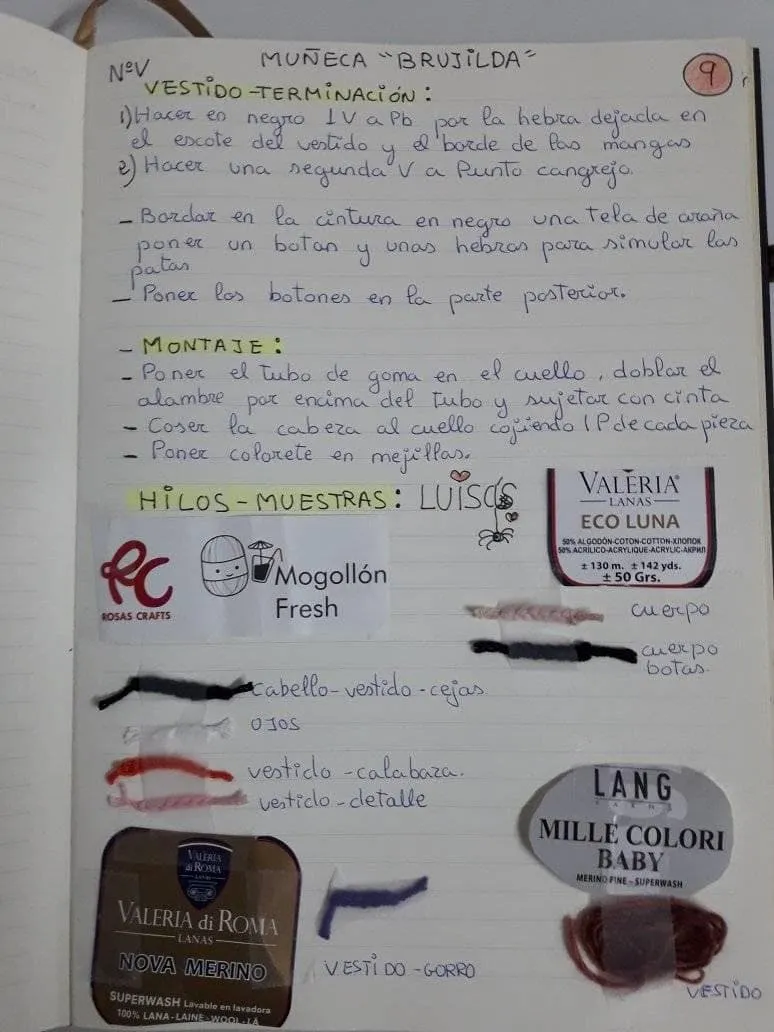 NºV
MUÑECA "BRUJILDA"
9
VESTIDO-TERMINACIÓN:
1) Hacer en negro 1V a Pb por la hebra dejada en
el escote del vestido y el borde de las mangas
2) Hacer una segunda V a Punto cangrejo.
- Bordar en la cintura en negro una tela de araña
poner un boton y unas hebras para simular las
patas
- Poner los botones en la parte posterior.
- MONTAJE:
- Poner el tubo de goma en el cuello, doblar el
alambre por encima del tubo y sujetar con cinta
- Coser la cabeza al cuello cojiendo 1P de cada pieza
- Poner colorete en mejillas.
HILOS-MUESTRAS: LUISOS
VALERIA
LANAS
ECO LUNA
50% ALGODÓN-COTON-COTTON-ХЛОПОК
50% ACRÍLICO-ACRYLIQUE-ACRYLIC-АКРИЛ
± 130 m. ± 142 yds.
± 50 Grs.
RC
ROSAS CRAFTS
Mogollón
Fresh
cuerpo
cuerpo
botas.
cabello-vestido-cejas
OJOS
vestido-calabaza.
vestido-detalle
LANG
YARNS
MILLE COLORI
BABY
MERINO FINE - SUPERWASH
VALERIA
di ROMA
LANAS
VALERIA di ROMA
LANAS
NOVA MERINO
SUPERWASH Lavable en lavadora
100% LANA-LAINE-WOOL-LÃ
VESTIDO-GORRO
VESTIDO